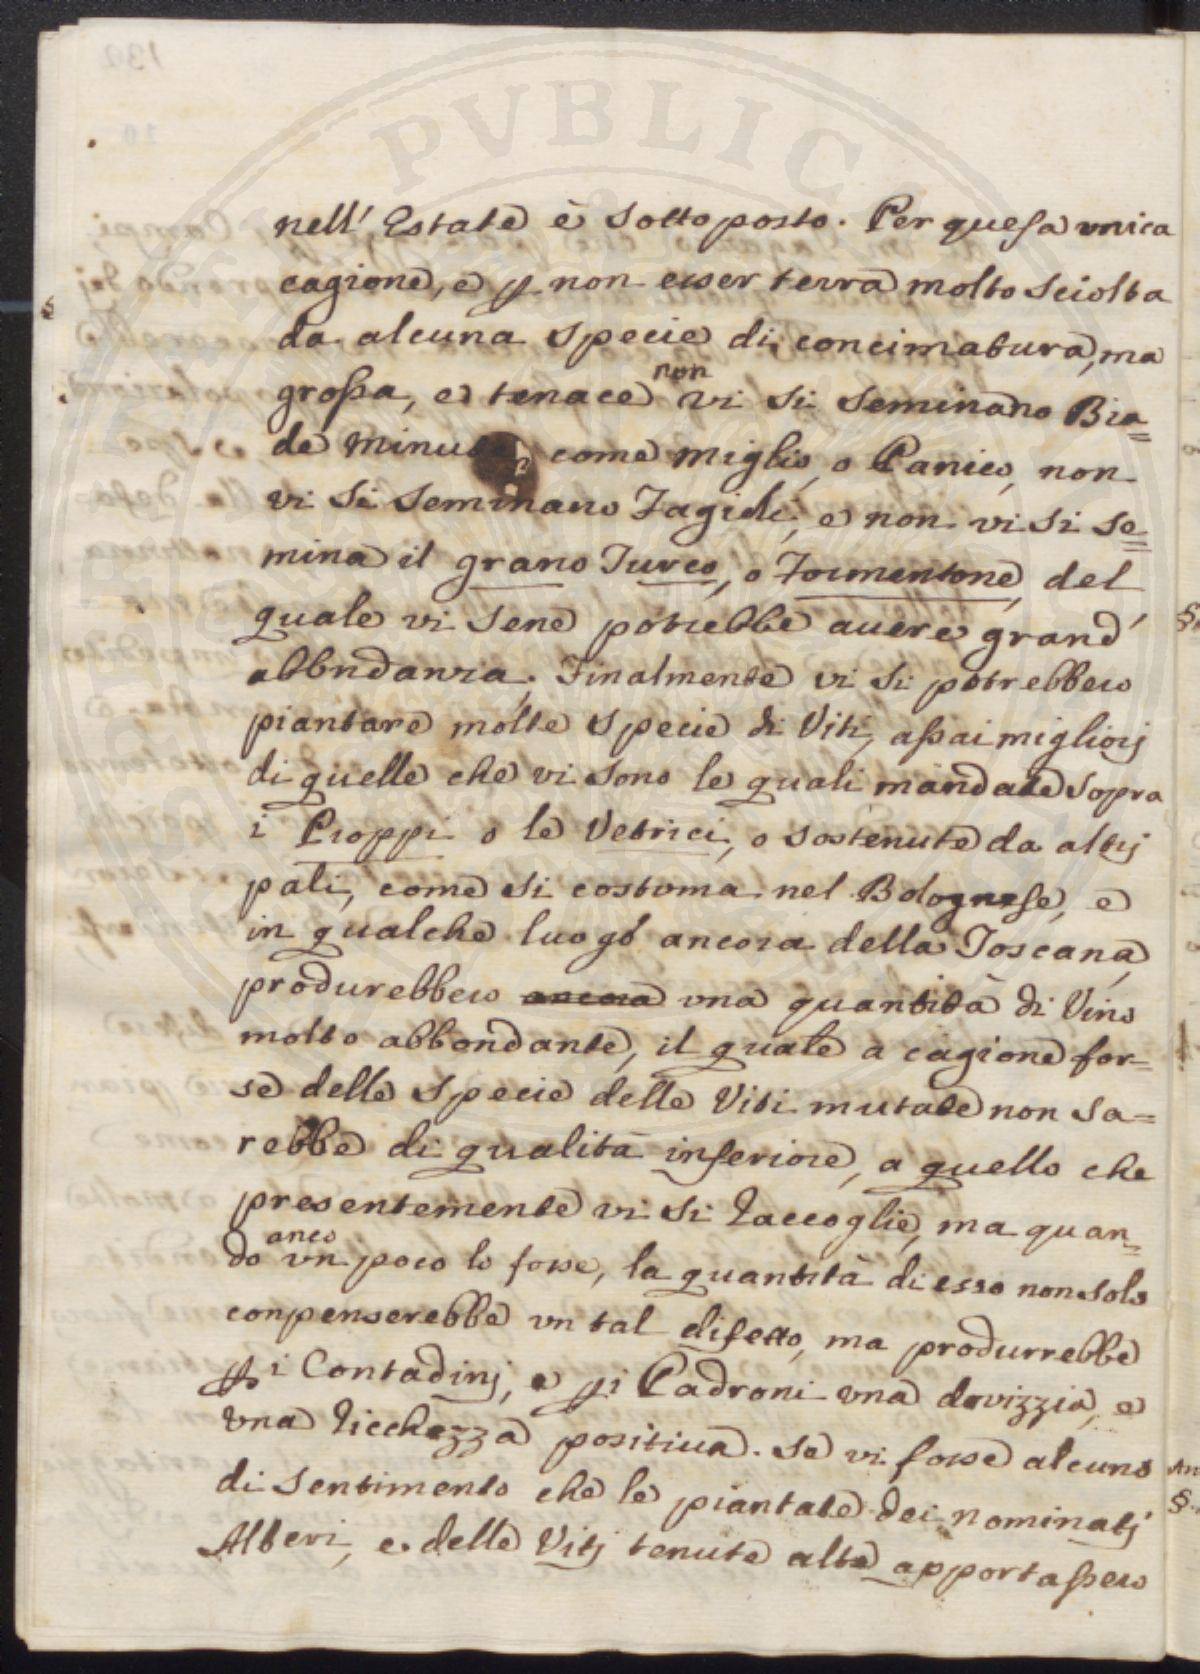 nell' Estate è sottoposto. Per questa vnica
cagione, e p non esser terra molto sciolta
da alcuna specie di concimatura, ma
grossa, e tenace non vi si seminano Bia=
de minute, come miglio, o Panico, non
vi si seminano Fagioli, e non vi si se=
mina il grano Turco, o Formentone, del
quale vi sene potrebbe auere grand'
abbndanza. Finalmente vi si potrebbero
piantare molte specie di Viti, assai migliorj
di quelle che vi sono le quali mandate sopra
i Pioppi o le Vetrici, o sostenute da altrj
pali, come si costvma nel Bolognese, e
in qualche luogo ancora della Toscana,
produrebbero ancora vna quantità di Vino
molto abbondante, il quale a cagione for=
se delle specie delle Viti mutate non sa=
rebbe di qualità inferiore, a quello che
presentemente vi si raccoglie, ma quan=
do anco vn poco lo fosse, la quantità di esso non solo
conpenserebbe vn tal difetto, ma produrrebbe
p i Contadinj, e p i Padroni vna dovizzia, e
vna ricchezza positiua. Se vi fosse alcuno
di sentimento che le piantate dei nominatj
Alberi, e delle Vitj tenute alte apportassero
PVBLIC